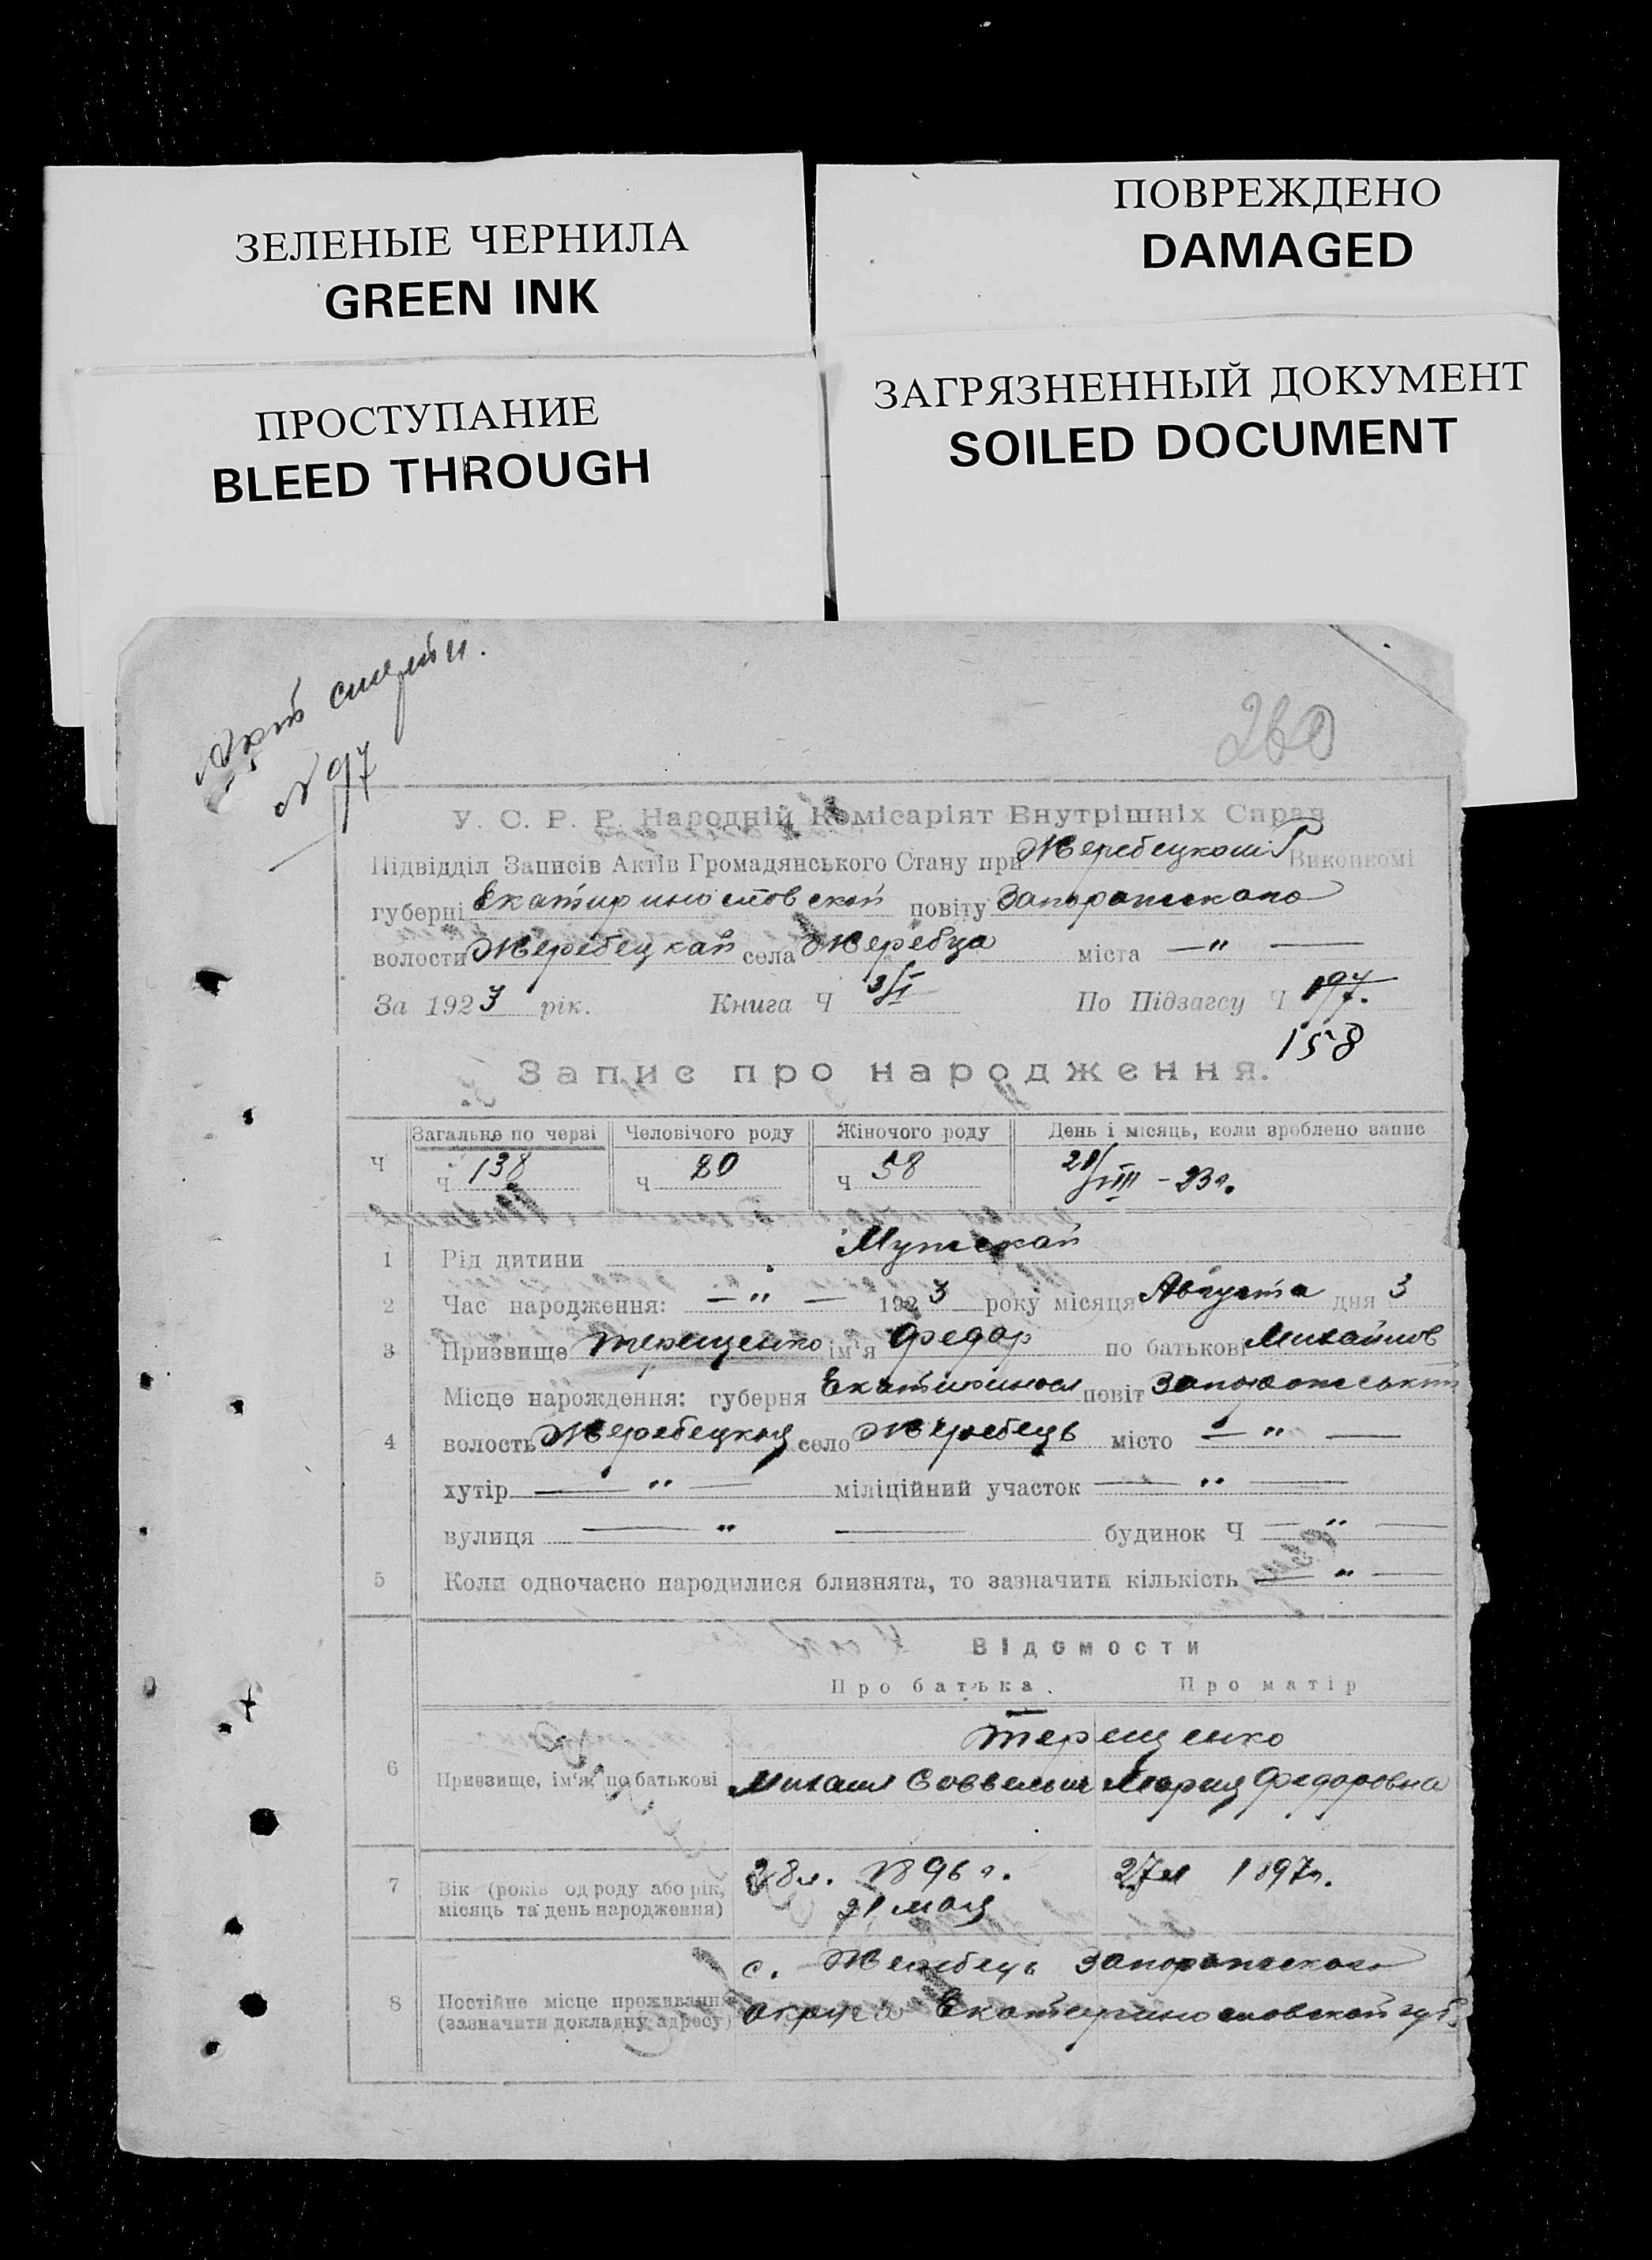 ЗЕЛЕНЫЕ ЧЕРНИЛА
GREEN INK
ПРОСТУПАНИЕ
BLEED THROUGH
ПОВРЕЖДЕНО
DAMAGED
ЗАГРЯЗНЕННЫЙ ДОКУМЕНТ
SOILED DOCUMENT
Актъ смерти.
№ 97
260
У. С. Р. Р. Народній Комісаріят Внутрішніх Справ
Підвідділ Записів Актів Громадянського Стану при Жеребецком Р Виконкомі
губерні Екатириностовской повіту Запорожскаго
волости Жеребецкай села Жеребца міста — " —
За 1923 рік. Книга Ч 3/I По Підзагсу Ч 197.
158
Запис про народження.
Загальне по черзі Человічого роду Жіночого роду День і місяць, коли зроблено запис
Ч Ч 138 Ч 80 Ч 58 28/VIII – 23 г.
1 Рід дитини Мужской
2 Час народження: — " — 1923 року місяця Августа дня 3
3 Призвище Терещенко ім'я Федор по батькові Михайлов
Місце нарождення: губерня Екатиринос повіт
4 волость Жеребецкая село Жеребець місто — " —
хутір — " — міліційний участок — " —
вулиця — " — будинок Ч — " —
5 Коли одночасно народилися близнята, то зазначити кількість — " —
Відомости
Про батька. Про матір
Терещенко
6 Призвище, ім'я, по батькові Михаил Мария Федоровна
7 Вік (років од роду або рік, місяць та день народження) 28 л. 1896 г. 27 л 1897 г.
21 мая
с. Жеребець Запорожскаго
8 Постійне місце проживання
(зазначити докладну адресу) округа Екатеринославской губ.